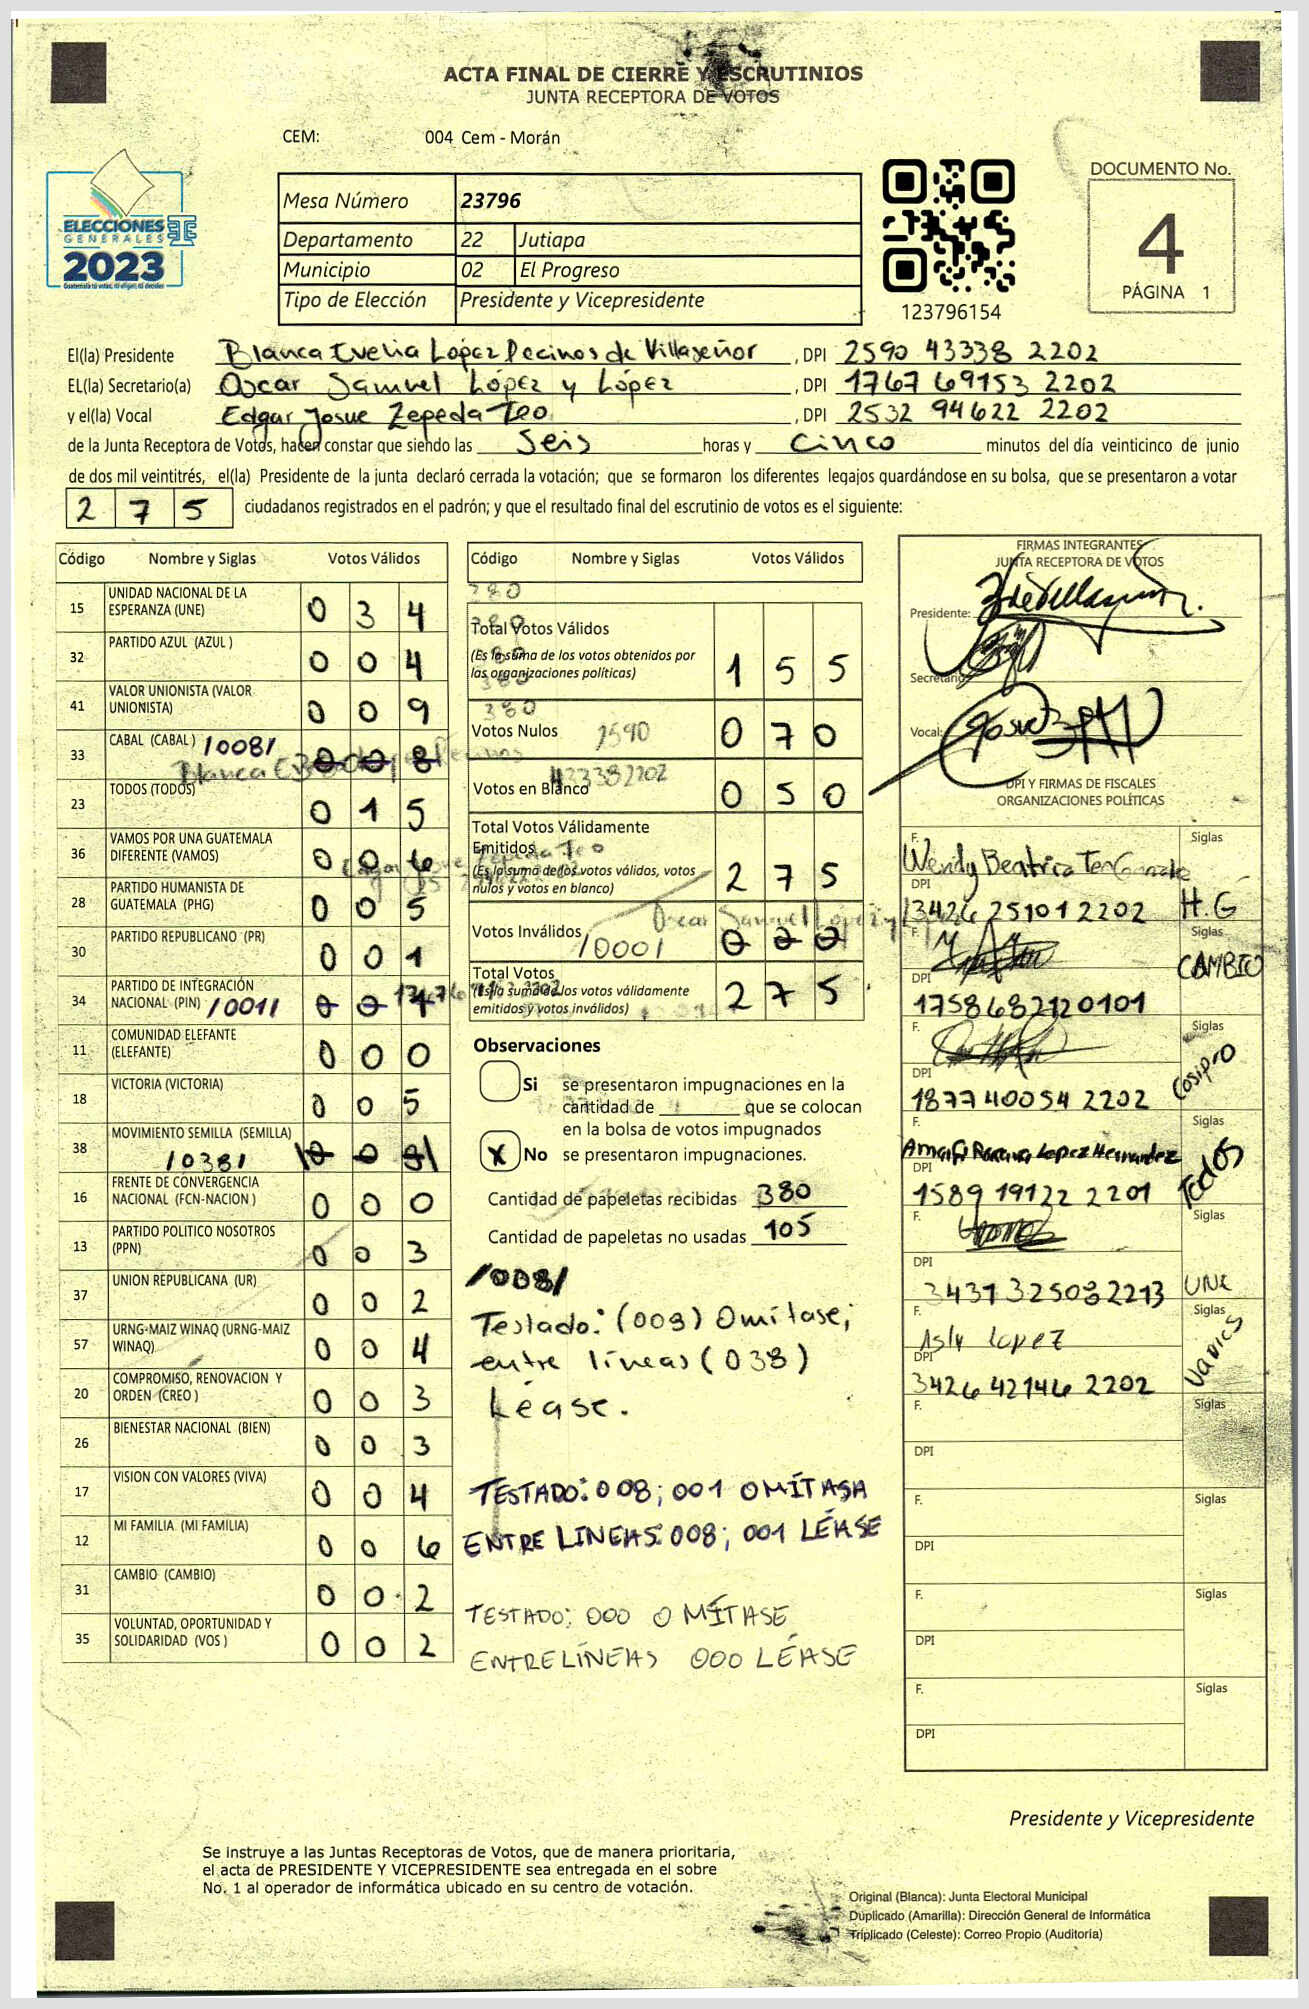 ACTA FINAL DE CIERRE Y ESCRUTINIOS
JUNTA RECEPTORA DE VOTOS
CEM: 004 Cem - Morán
ELECCIONES
GENERALES
2023
Guatemala tú votas, tú eliges, tú decides
Mesa Número 23796
Departamento 22 Jutiapa
Municipio 02 El Progreso
Tipo de Elección Presidente y Vicepresidente
123796154
DOCUMENTO No.
4
PÁGINA 1
El(la) Presidente Blanca Evelia López Pecinos de Villaseñor, DPI 2590 43338 2202
EL(la) Secretario(a) Oscar Samuel López y López, DPI 1767 69153 2202
y el(la) Vocal Edgar Josue Zepeda Teo, DPI 2532 94622 2202
de la Junta Receptora de Votos, hacen constar que siendo las Seis horas y Cinco minutos del día veinticinco de junio
de dos mil veintitrés, el(la) Presidente de la junta declaró cerrada la votación; que se formaron los diferentes legajos guardándose en su bolsa, que se presentaron a votar
275 ciudadanos registrados en el padrón; y que el resultado final del escrutinio de votos es el siguiente:
Código Nombre y Siglas Votos Válidos
15 UNIDAD NACIONAL DE LA ESPERANZA (UNE) 0 3 4
32 PARTIDO AZUL (AZUL ) 0 0 4
41 VALOR UNIONISTA (VALOR UNIONISTA) 0 0 9
33 CABAL (CABAL) /008/ 0 0 8
23 TODOS (TODOS) 0 1 5
36 VAMOS POR UNA GUATEMALA DIFERENTE (VAMOS) 0 0 6
28 PARTIDO HUMANISTA DE GUATEMALA (PHG) 0 0 5
30 PARTIDO REPUBLICANO (PR) 0 0 1
34 PARTIDO DE INTEGRACIÓN NACIONAL (PIN) /001/ 0 0 1
11 COMUNIDAD ELEFANTE (ELEFANTE) 0 0 0
18 VICTORIA (VICTORIA) 0 0 5
38 MOVIMIENTO SEMILLA (SEMILLA) /038/
16 FRENTE DE CONVERGENCIA NACIONAL (FCN-NACION ) 0 0 0
13 PARTIDO POLITICO NOSOTROS (PPN) 0 0 3
37 UNION REPUBLICANA (UR) 0 0 2
57 URNG-MAIZ WINAQ (URNG-MAIZ WINAQ) 0 0 4
20 COMPROMISO, RENOVACION Y ORDEN (CREO ) 0 0 3
26 BIENESTAR NACIONAL (BIEN) 0 0 3
17 VISION CON VALORES (VIVA) 0 0 4
12 MI FAMILIA (MI FAMILIA) 0 0 6
31 CAMBIO (CAMBIO) 0 0 2
35 VOLUNTAD, OPORTUNIDAD Y SOLIDARIDAD (VOS ) 0 0 2
Código Nombre y Siglas Votos Válidos
380
380
380
380
380
Total Votos Válidos
(Es la suma de los votos obtenidos por
las organizaciones políticas) 1 5 5
Votos Nulos 2590 0 7 0
433382202
Votos en Blanco 0 5 0
Total Votos Válidamente
Emitidos
(Es la suma de los votos válidos, votos
nulos y votos en blanco) 2 7 5
Oscar Samuel López y
Votos Inválidos /000/ 0 0 0
Total Votos
(Es la suma de los votos válidamente
emitidos y votos inválidos) 2 7 5
Observaciones
Si se presentaron impugnaciones en la
cantidad de ________ que se colocan
en la bolsa de votos impugnados
X No se presentaron impugnaciones.
Cantidad de papeletas recibidas 380
Cantidad de papeletas no usadas 105
/008/
Testado: (003) Omítase;
entre líneas (038)
Léase.
TESTADO: 008; 001 OMÍTASA
ENTRE LINEAS: 008; 001 LÉASE
TESTADO: 000 OMÍTASE
ENTRELÍNEAS 000 LÉASE
FIRMAS INTEGRANTES
JUNTA RECEPTORA DE VOTOS
Presidente:
Secretario:
Vocal:
DPI Y FIRMAS DE FISCALES
ORGANIZACIONES POLÍTICAS
F. Wendy Beatriz Siglas
DPI 3426 25101 2202 H.G
F. Siglas CAMBIO
DPI 1758682120101
F. Siglas Cosipro
DPI 1877 40054 2202
F. Lopez Hernandez Siglas Todos
DPI 1589 19122 2201
F. Siglas
DPI 3431 32503 2213 UNE
F. Asly Lopez Siglas
DPI 3426 42146 2202
F. Siglas
DPI
F. Siglas
DPI
F. Siglas
DPI
F. Siglas
DPI
Presidente y Vicepresidente
Se instruye a las Juntas Receptoras de Votos, que de manera prioritaria,
el acta de PRESIDENTE Y VICEPRESIDENTE sea entregada en el sobre
No. 1 al operador de informática ubicado en su centro de votación.
Original (Blanca): Junta Electoral Municipal
Duplicado (Amarilla): Dirección General de Informática
Triplicado (Celeste): Correo Propio (Auditoría)